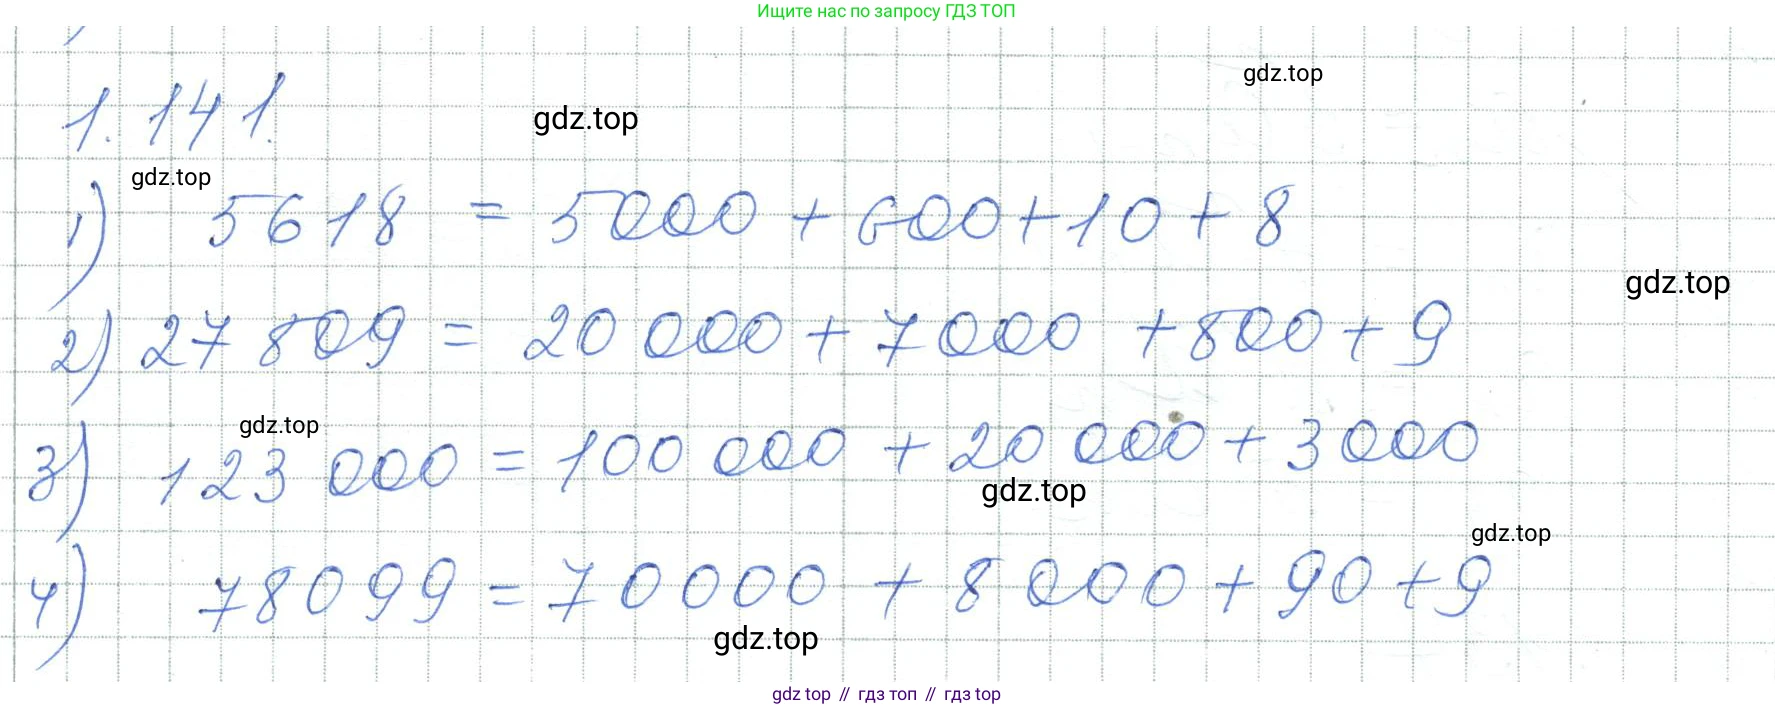 Ищите нас по запросу ГДЗ ТОП
gdz.top
1.141.
gdz.top
gdz.top
1) 5618 = 5000 + 600 + 10 + 8
gdz.top
2) 27 809 = 20 000 + 7000 + 800 + 9
gdz.top
3) 123 000 = 100 000 + 20 000 + 3000
gdz.top
gdz.top
4) 78099 = 70000 + 8000 + 90 + 9
gdz.top
gdz top // гдз топ // гдз top